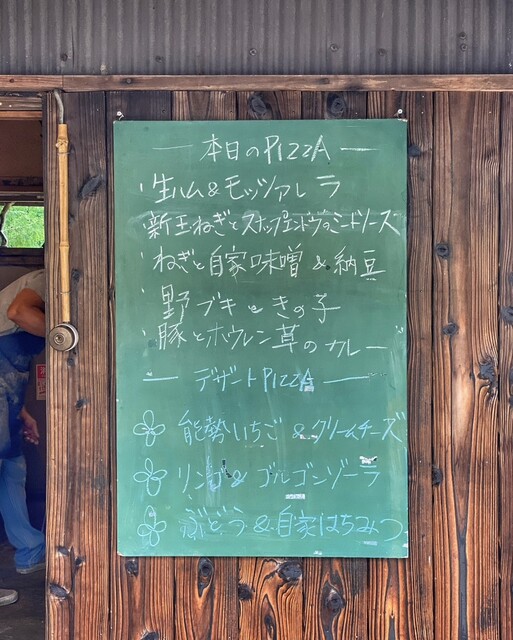 — 本日のPIZZA —
・生ハム&モッツァレラ
・新玉ねぎとスナップエンドウのミートソース
・ねぎと自家味噌&納豆
・野ブキときの子
・豚とホウレン草のカレー
— デザートPIZZA —
能勢いちご&クリームチーズ
リンゴ&ゴルゴンゾーラ
ぶどう&自家はちみつ